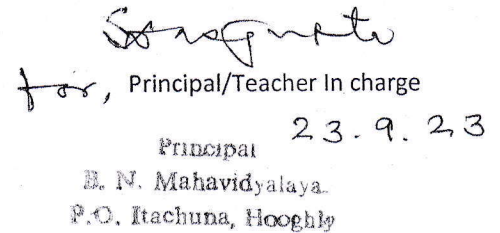 for, Principal/Teacher In charge
23.9.23
Principal
B. N. Mahavidyalaya.
P.O. Itachuna, Hooghly